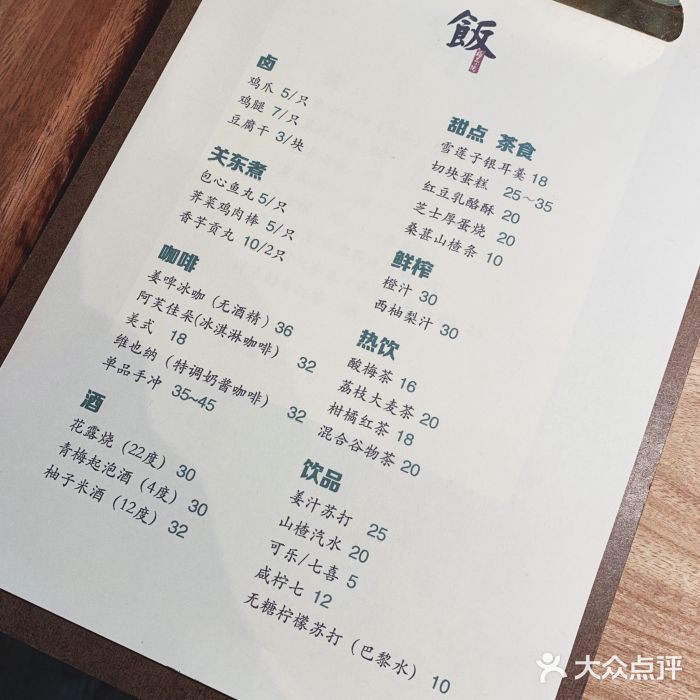 飯
卤
鸡爪 5/只
鸡腿 7/只
豆腐干 3/块
关东煮
包心鱼丸 5/只
荠菜鸡肉棒 5/只
香芋贡丸 10/2只
咖啡
姜啤冰咖（无酒精）36
阿芙佳朵(冰淇淋咖啡) 32
美式 18
维也纳（特调奶酱咖啡） 32
单品手冲 35~45
酒
花露烧（22度）30
青梅起泡酒（4度）30
柚子米酒（12度）32
甜点 茶食
雪莲子银耳羹 18
切块蛋糕 25~35
红豆乳酪酥 20
芝士厚蛋烧 20
桑葚山楂条 10
鲜榨
橙汁 30
西柚梨汁 30
热饮
酸梅茶 16
荔枝大麦茶 20
柑橘红茶 18
混合谷物茶 20
饮品
姜汁苏打 25
山楂汽水 20
可乐/七喜 5
咸柠七 12
无糖柠檬苏打（巴黎水）10
大众点评